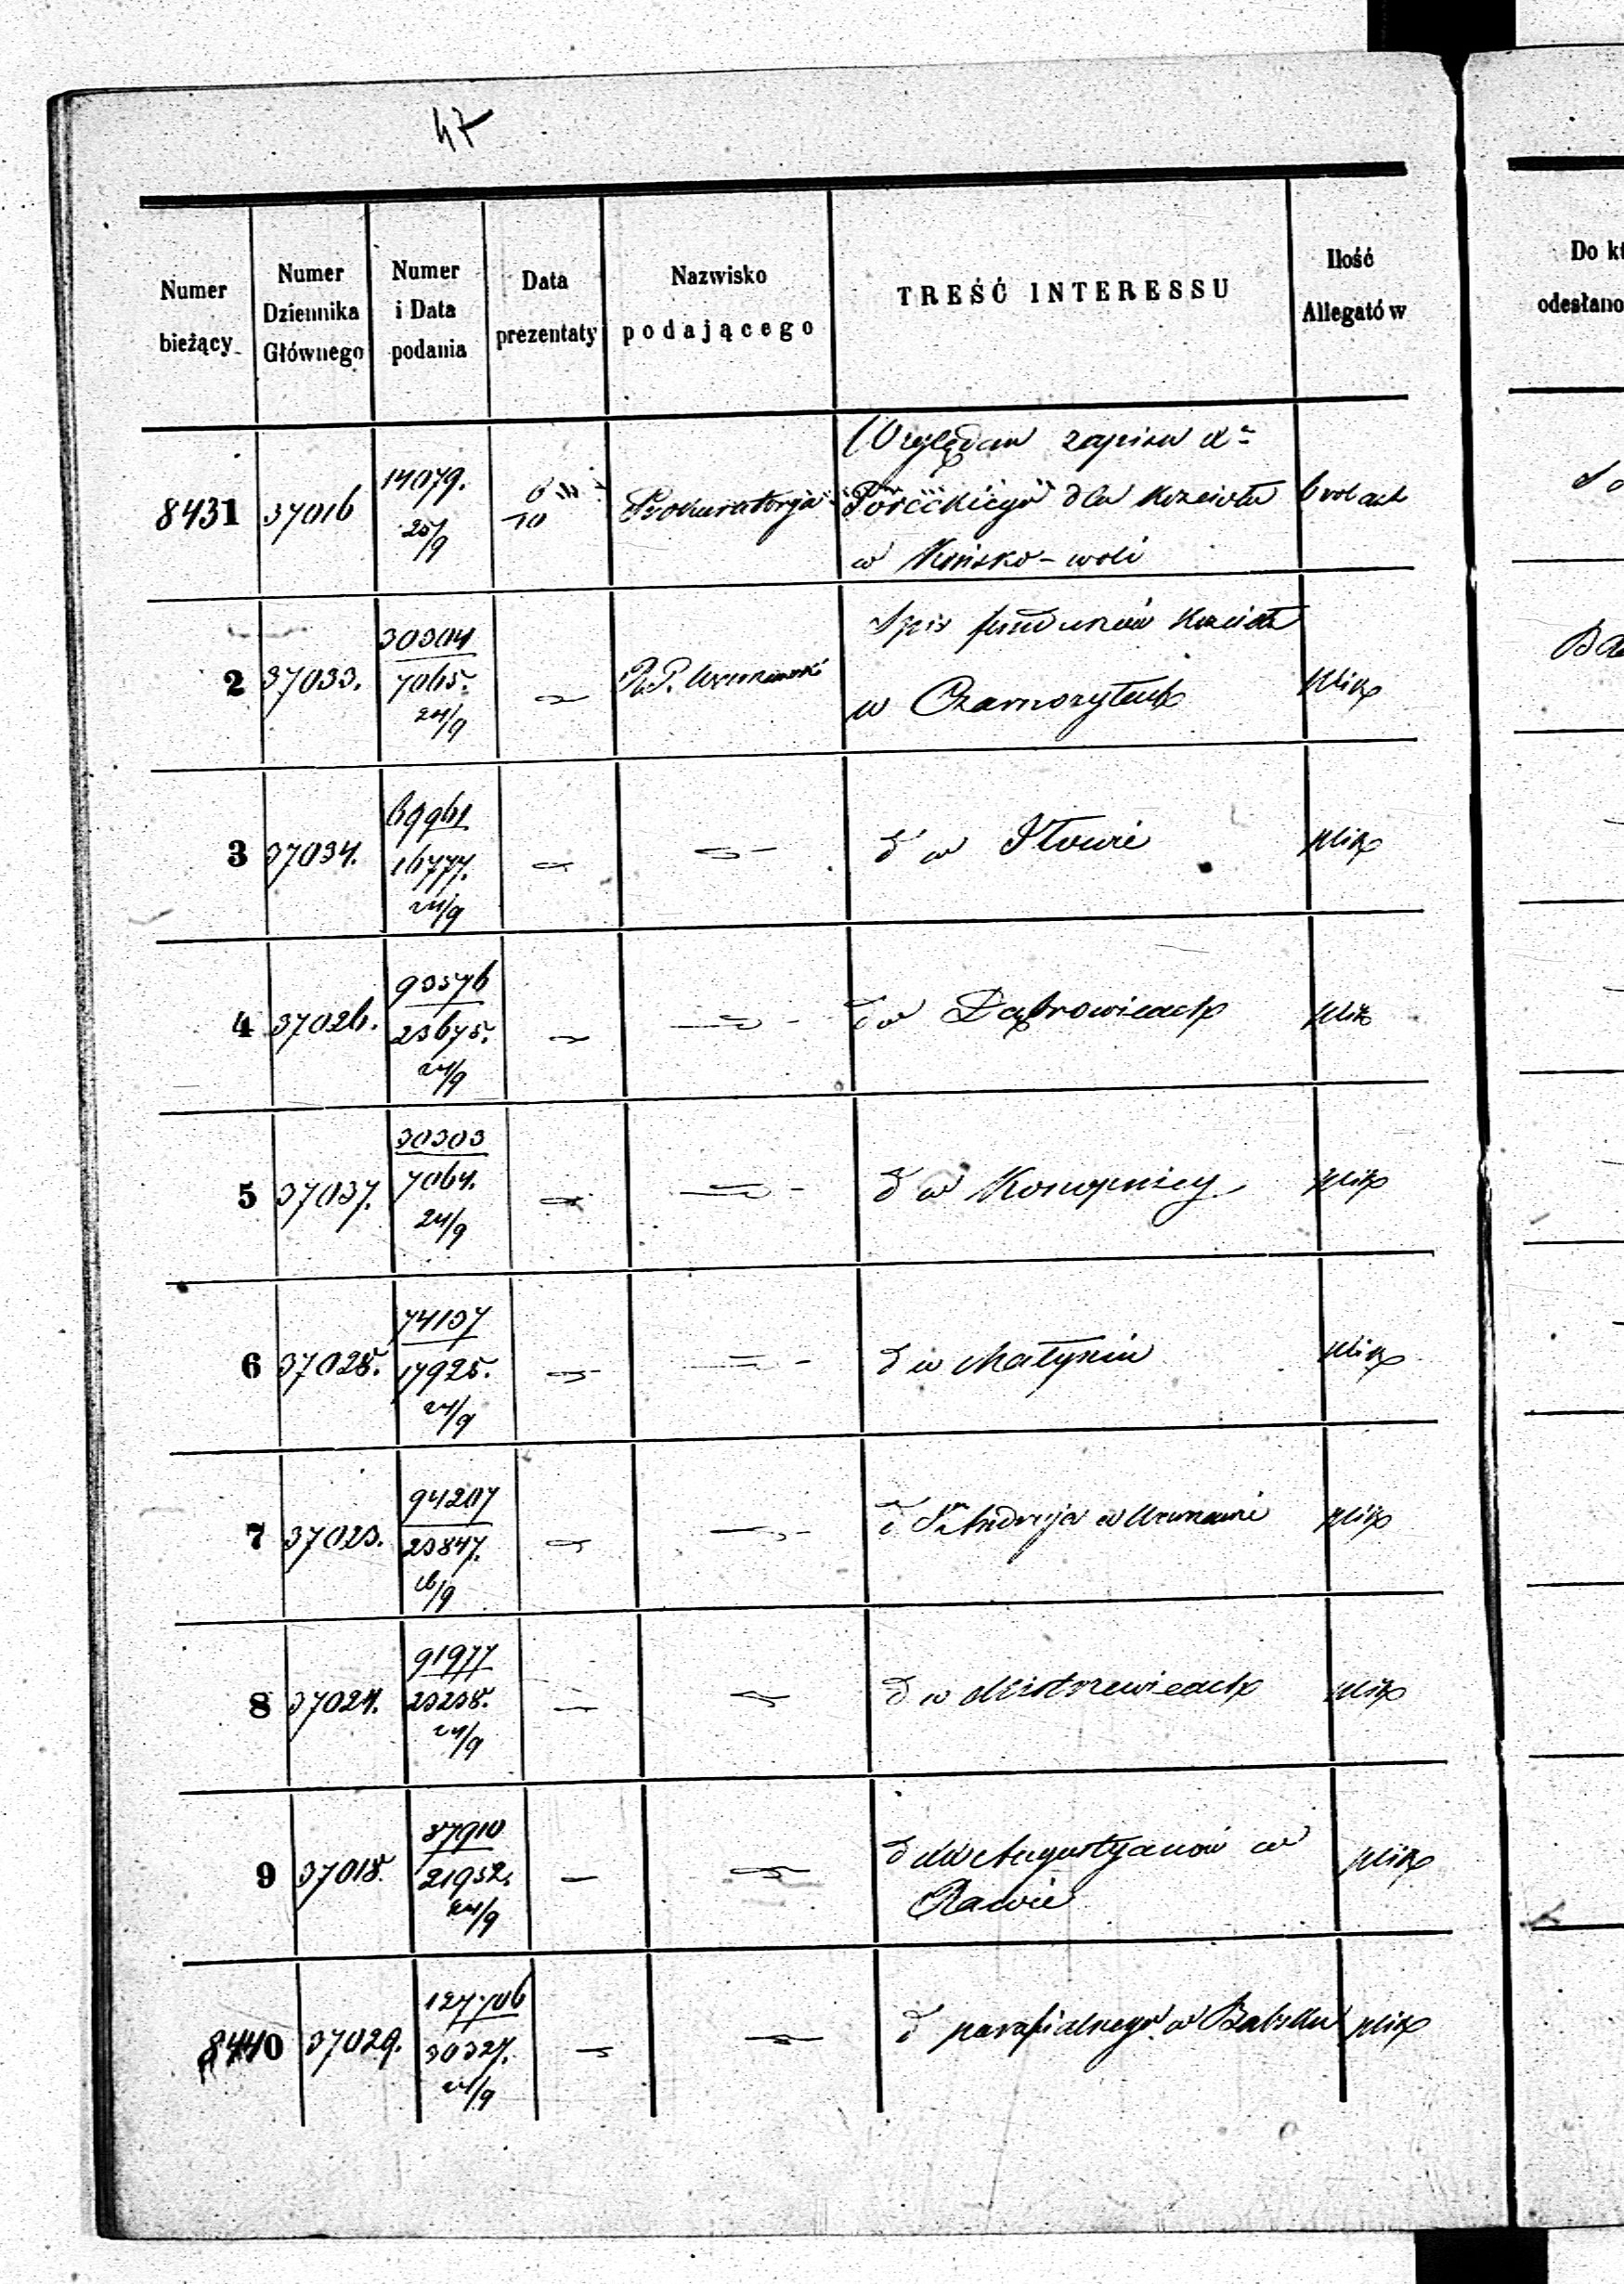 47
Numer bieżący
Numer Dziennika Głównego
Numer i Data podania
Data prezentaty
Nazwisko podającego
TREŚĆ INTERESSU
Ilość Allegatów
Do
odesłano
8431 37016 14079. 25/9 6/10 Prokuratorja Względem zapisu
dla Kościoła 6 vol akt
w Końsko-woli
2 37033. 30304 7065. 24/9 R.P. Spis funduszów Kościoła
w plik
3 37034. 69961 16777. 24/9 d w Iłowie plik
4 37026. 93576 23675. 24/9 d w Dąbrowicach plik
5 37037. 30303 7064. 24/9 d w Konopnicy plik
6 37028. 74137 17925. 24/9 d w Małyniu plik
7 37023. 94207 23847. /9 d Sgo Andrzeja w plik
8 37024. 91977 23238. 24/9 d w Mistrzewicach plik
9 37018. 87910 21952. 24/9 d Augustyanów w
Rawie plik
8440 37029. 127706 30327. 24/9 d parafialnego w Babsku plik